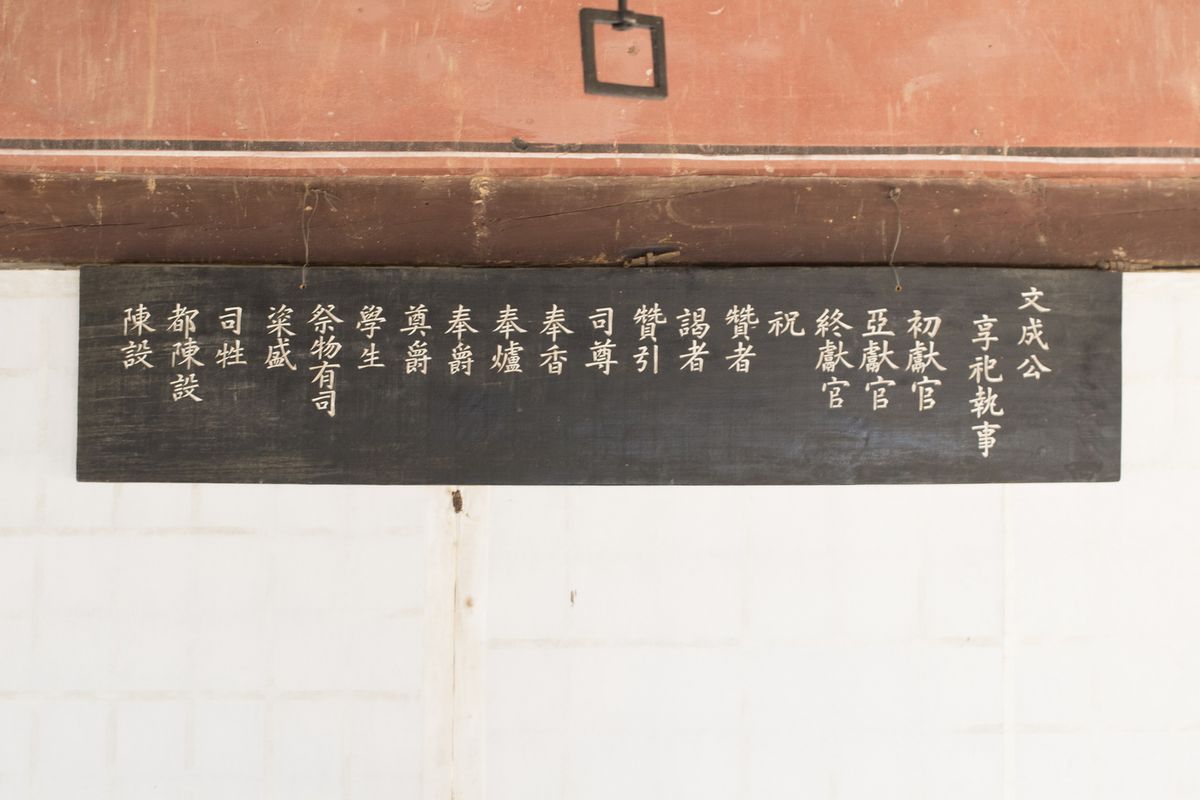 文成公
享祀執事
初獻官
亞獻官
終獻官
祝
贊者
謁者
贊引
司尊
奉香
奉爐
奉爵
奠爵
學生
祭物有司
粢盛
司牲
都陳設
陳設